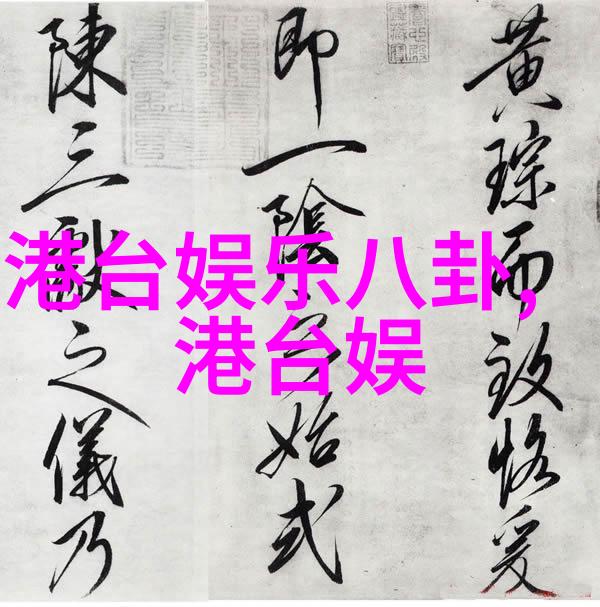 黄琮而致恪爰
即一陰始式
陳三獻之儀乃
港台娱乐八卦,
港台娱